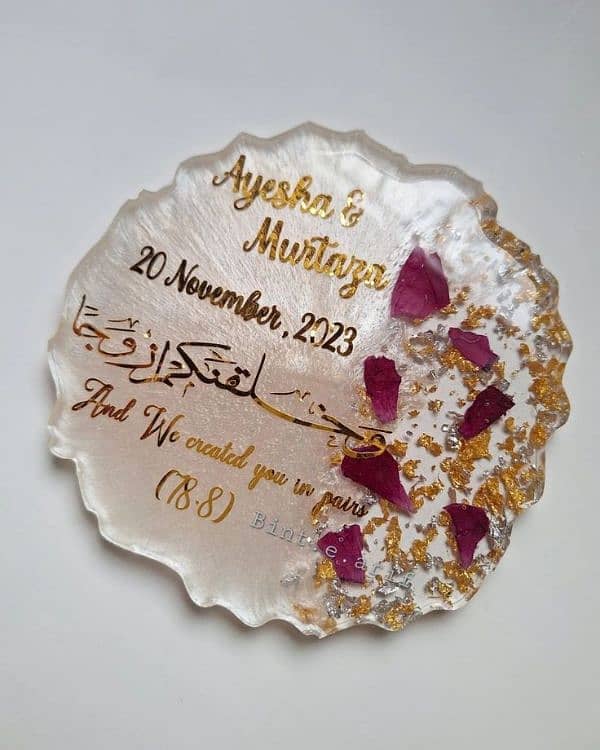 Ayesha &
Murtaza
20 November, 2023
وخلقنكم ازوجا
And We created you in pairs
(78.8)